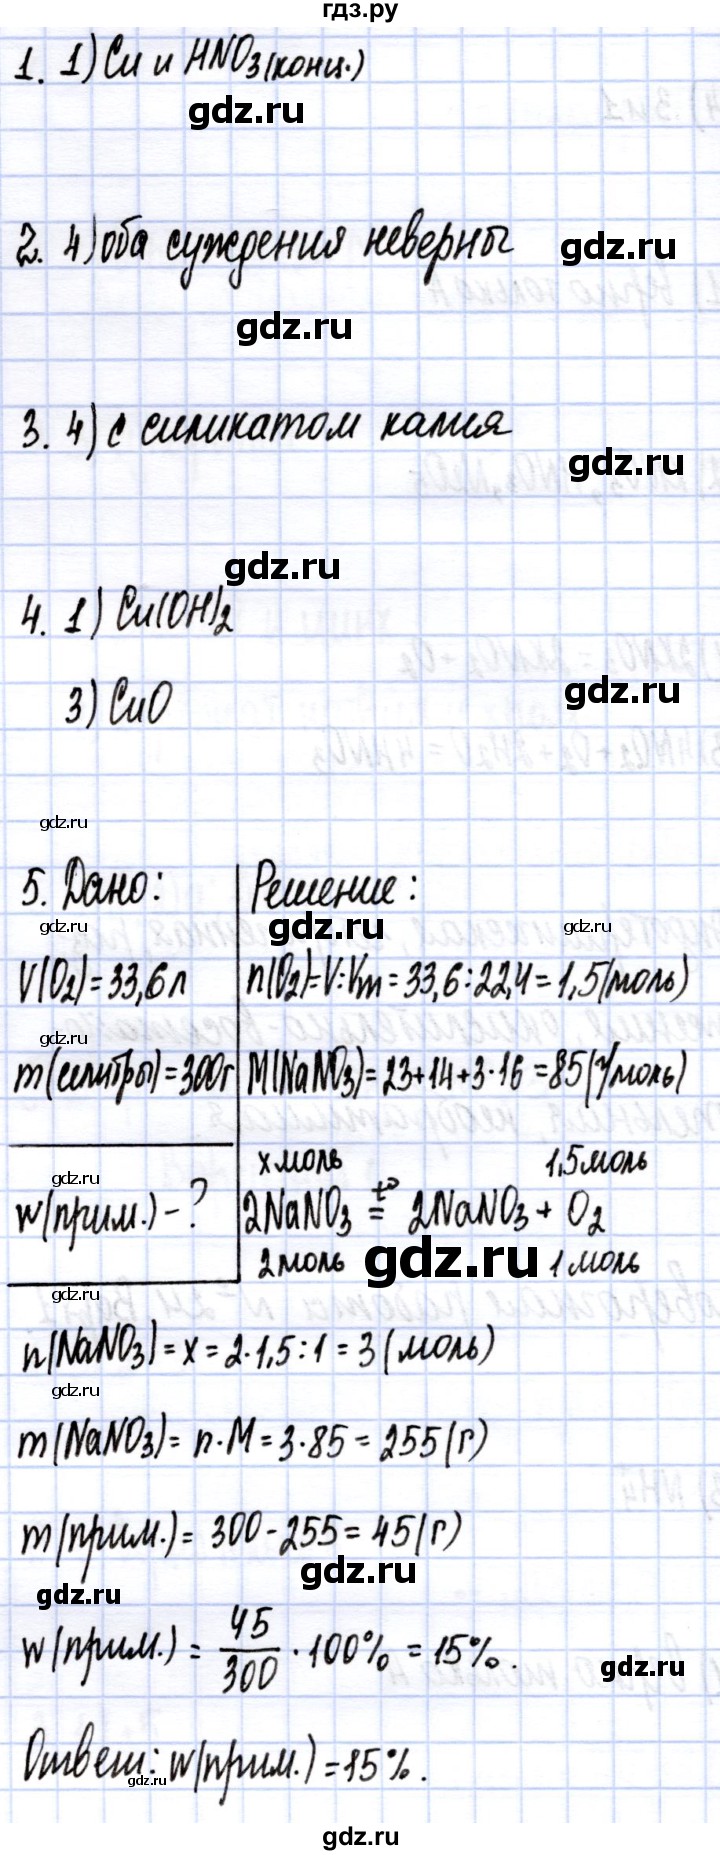 гдз.ру
1. 1) Cu и HNO3(конц.)
gdz.ru
2. 4) оба суждения неверны
gdz.ru
gdz.ru
3. 4) с силикатом калия
gdz.ru
gdz.ru
4. 1) Cu(OH)2
gdz.ru
3) CuO
gdz.ru
5. Дано:
Решение:
gdz.ru
gdz.ru
gdz.ru
V(O2)=33,6 л
n(O2)=V:Vm = 33,6:22,4 = 1,5(моль)
m(селитры)=300г
M(NaNO3)=23+14+3·16=85(г/моль)
gdz.ru
x моль 1,5 моль
w(прим.) - ?
2NaNO3 t° = 2NaNO3 + O2
gdz.ru
2 моль 1 моль
gdz.ru
n(NaNO3)=x=2·1,5:1=3(моль)
gdz.ru
m(NaNO3)= n·M=3·85=255(г)
m(прим.)= 300-255=45(г)
gdz.ru
gdz.ru
w(прим.) = 45/300 · 100% = 15%.
gdz.ru
Ответ: w(прим.)=15%.
gdz.ru
gdz.ru